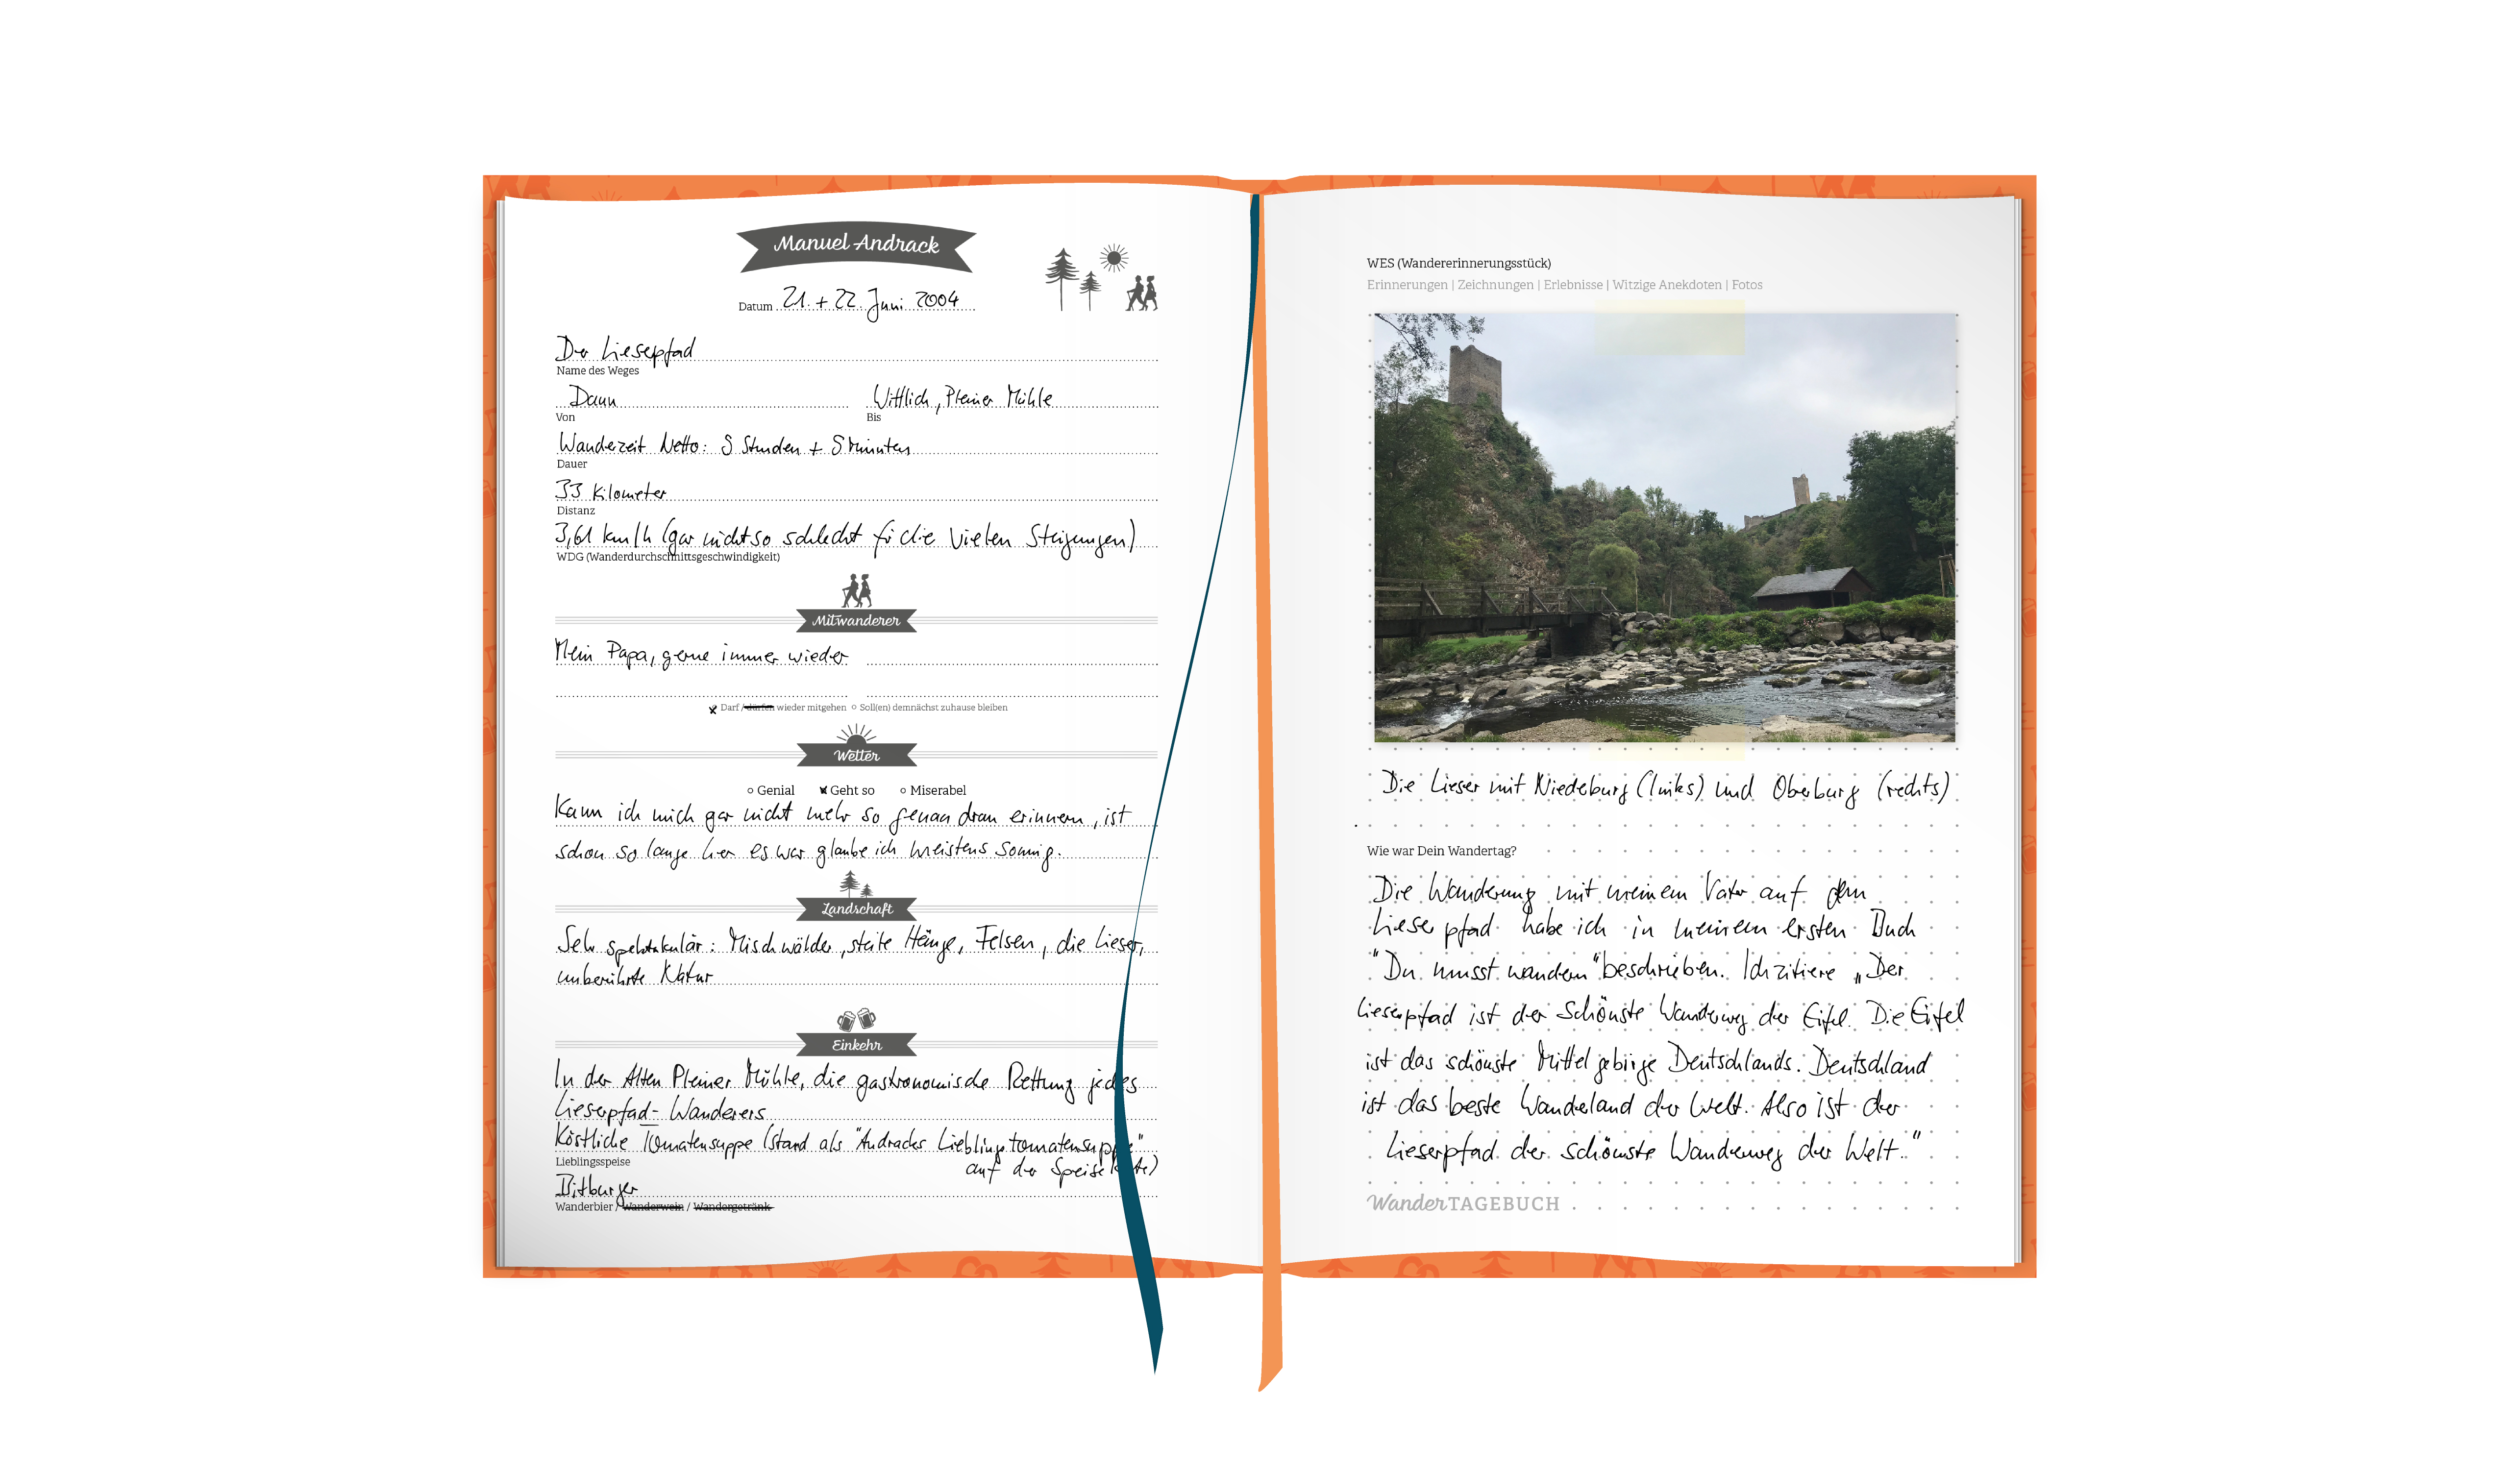 Manuel Andrack
Datum 21. + 22. Juni 2004
Der Lieserpfad
Name des Weges
Daun
Wittlich, Pleiner Mühle
Von
Bis
Wanderzeit Netto: 9 Stunden + 9 Minuten
Dauer
33 Kilometer
Distanz
3,61 km/h (gar nicht so schlecht für die vielen Steigungen)
WDG (Wanderdurchschnittsgeschwindigkeit)
Mitwanderer
Mein Papa, gerne immer wieder
Darf / dürfen wieder mitgehen Soll(en) demnächst zuhause bleiben
Wetter
Genial Geht so Miserabel
Kann ich mich gar nicht mehr so genau dran erinnern, ist
schon so lange her es war glaube ich meistens sonnig.
Landschaft
Sehr spektakulär: Mischwälder, steile Hänge, Felsen, die Lieser,
unberührte Natur
Einkehr
In der Alten Pleiner Mühle, die gastronomische Rettung jedes
Lieserpfad-Wanderers
Köstliche Tomatensuppe (stand als "Andracks Lieblingstomatensuppe"
auf der Speisekarte)
Lieblingsspeise
Bitburger
Wanderbier / Wanderwein / Wandergetränk
WES (Wandererinnerungsstück)
Erinnerungen | Zeichnungen | Erlebnisse | Witzige Anekdoten | Fotos
Die Lieser mit Niederburg (links) und Oberburg (rechts)
Wie war Dein Wandertag?
Die Wanderung mit meinem Vater auf dem
Lieserpfad habe ich in meinem ersten Buch
"Du musst wandern" beschrieben. Ich zitiere „Der
Lieserpfad ist der schönste Wanderweg der Eifel. Die Eifel
ist das schönste Mittelgebirge Deutschlands. Deutschland
ist das beste Wanderland der Welt. Also ist der
Lieserpfad der schönste Wanderweg der Welt."
WanderTAGEBUCH